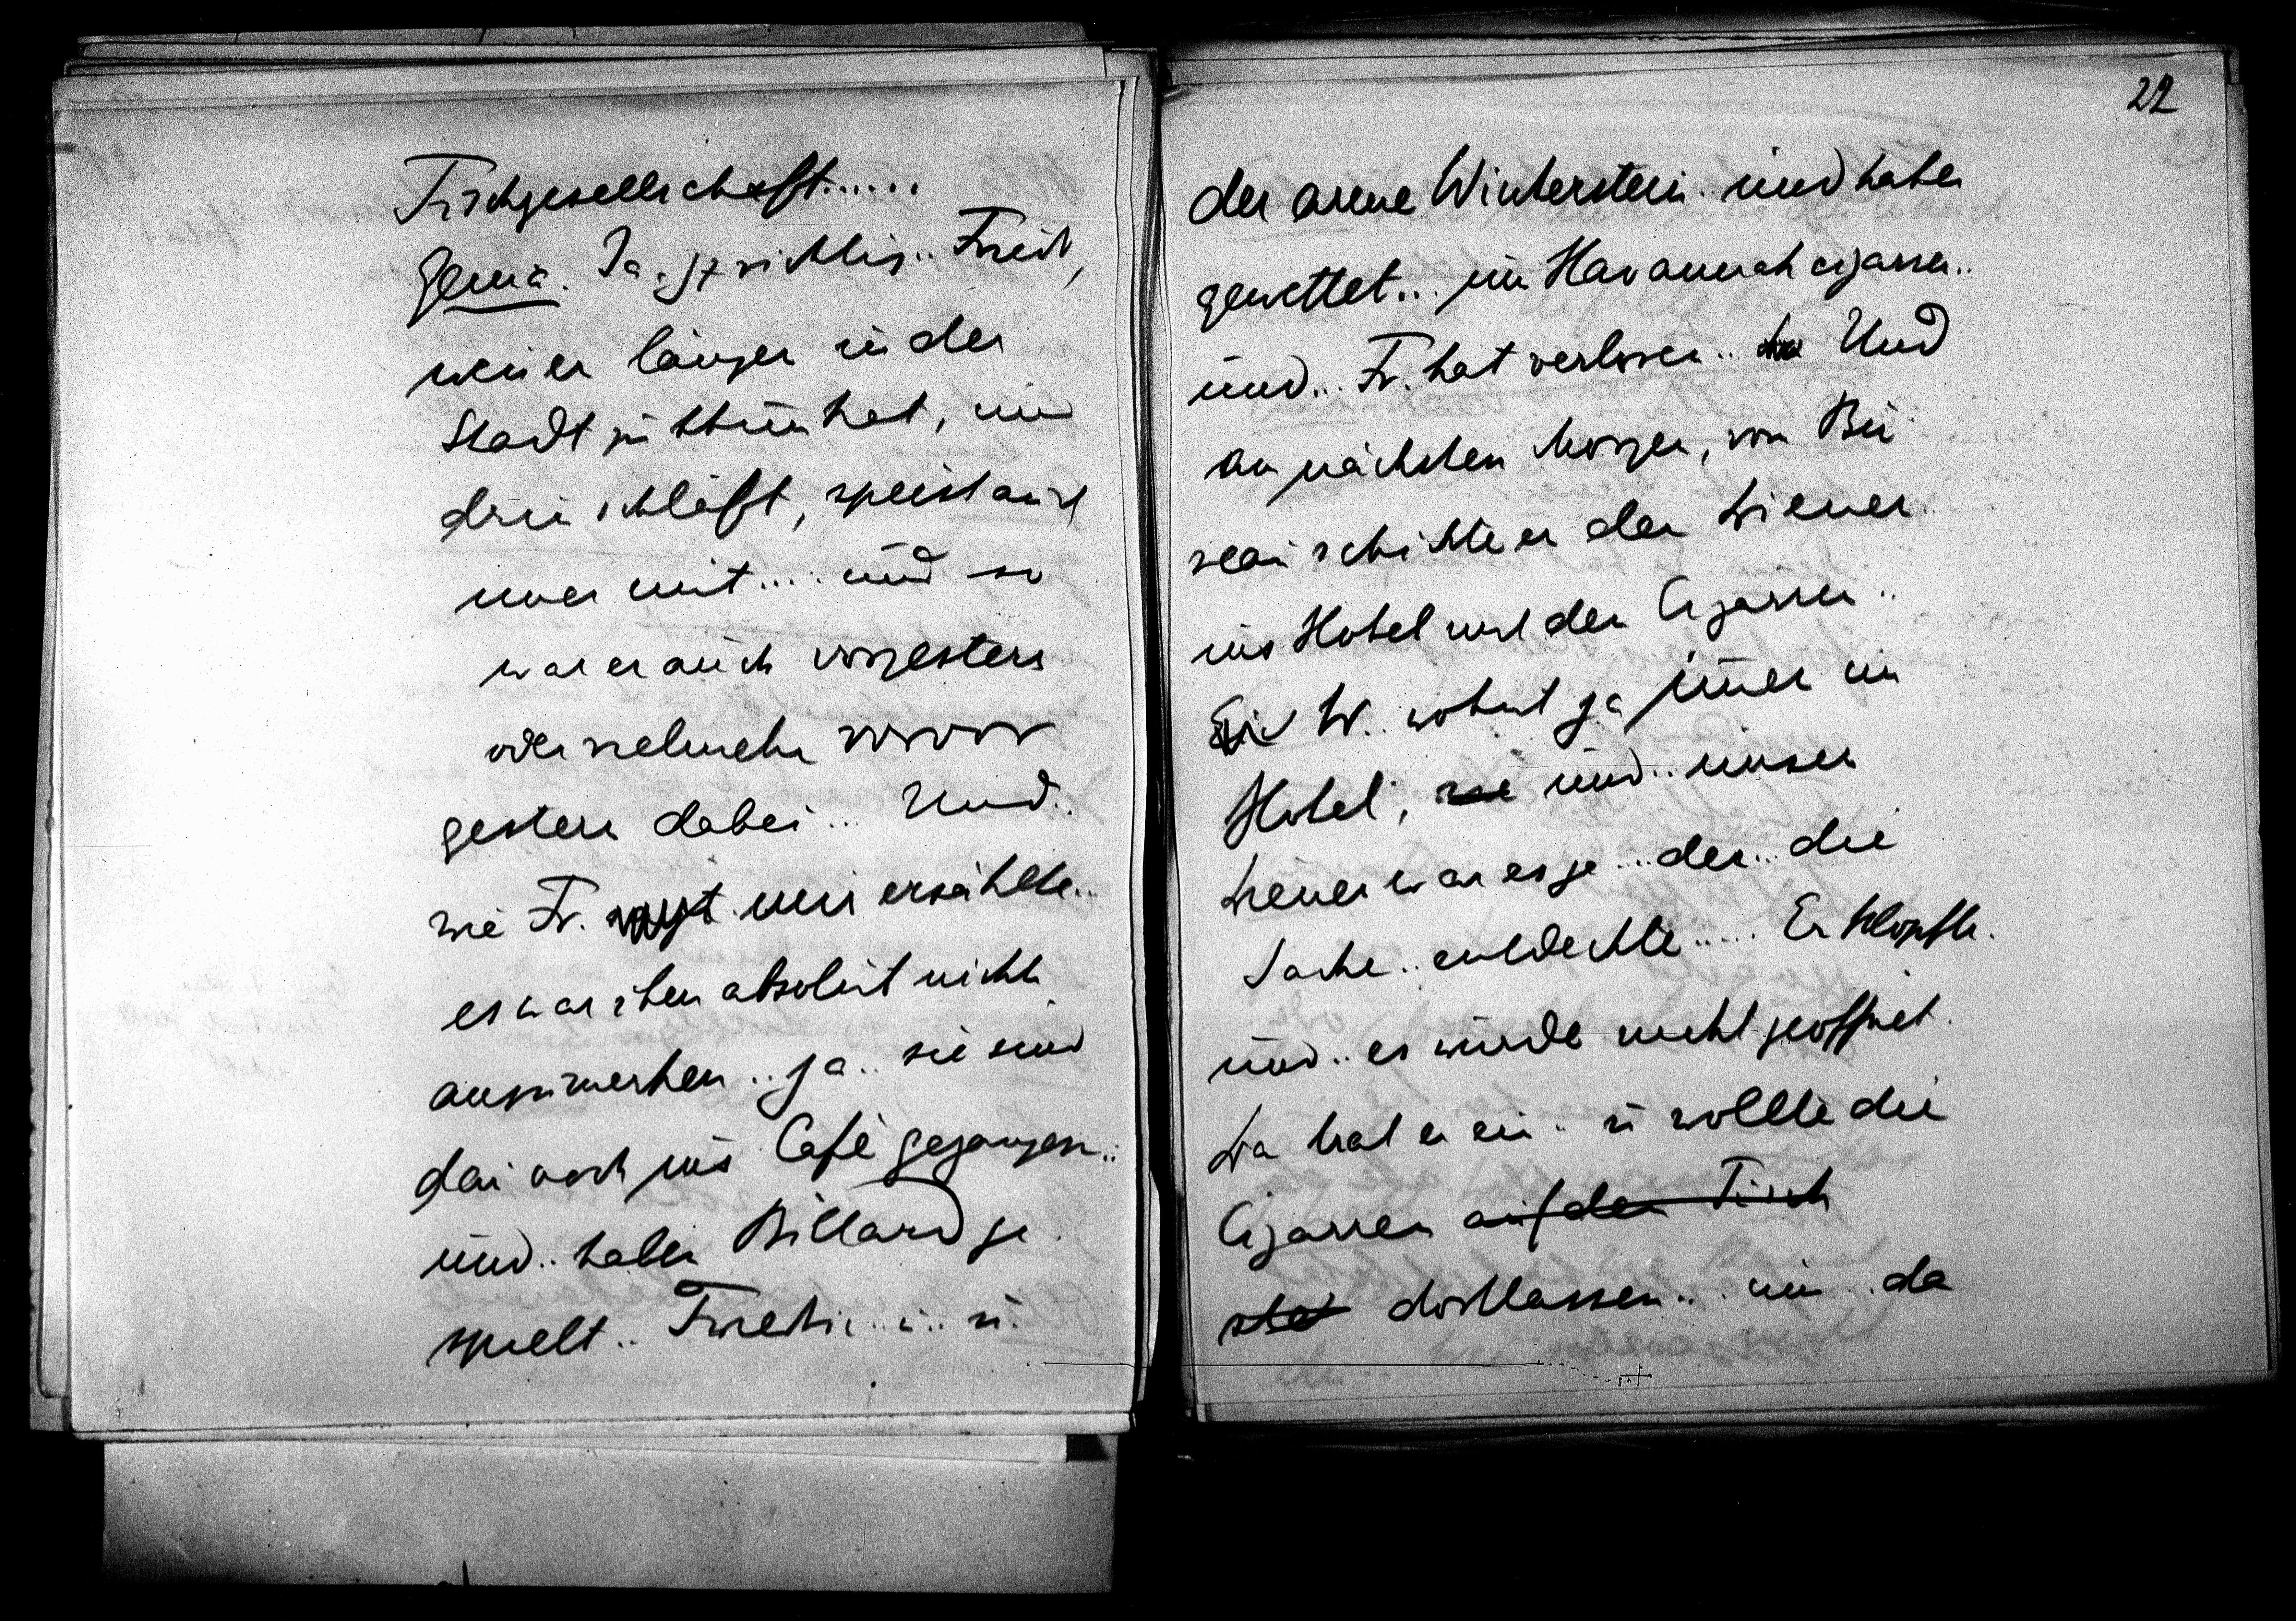 Tischgesellschaft......
Genia. Ja.. ganz richtig.. Friedr,
wenn er länger in der
Stadt zu thun hat, und
drin schläft, speist auch
im̅er mit.... und so
war er auch vorgestern
oder vielmehr vorvor
gestern dabei... Und.
wie Fr. mir erzählte..
es war ihm absolut nichts
anzumerken.. ja.. sie sind
dan̅ noch ins Café gegangen..
und.. haben Billard ge
spielt.. Friedrich.... u.
22
der arme Winterstein.. und haben
gewettet... um Havannah cigarren..
und.. Fr. hat verloren.. Und
am nächsten Morgen, vom Bu
reau schickte er den Diener
ins Hotel mit den Cigarren..
W. wohnt ja im̅er im
Hotel, und.. unser
Diener war es ja .... der... die
Sache.. entdeckte..... Er klopfte.
und.. es wurde nicht geöffnet.
Da trat er ein.. u wollte die
Cigarren auf den Tisch
dortlassen... nun.. da